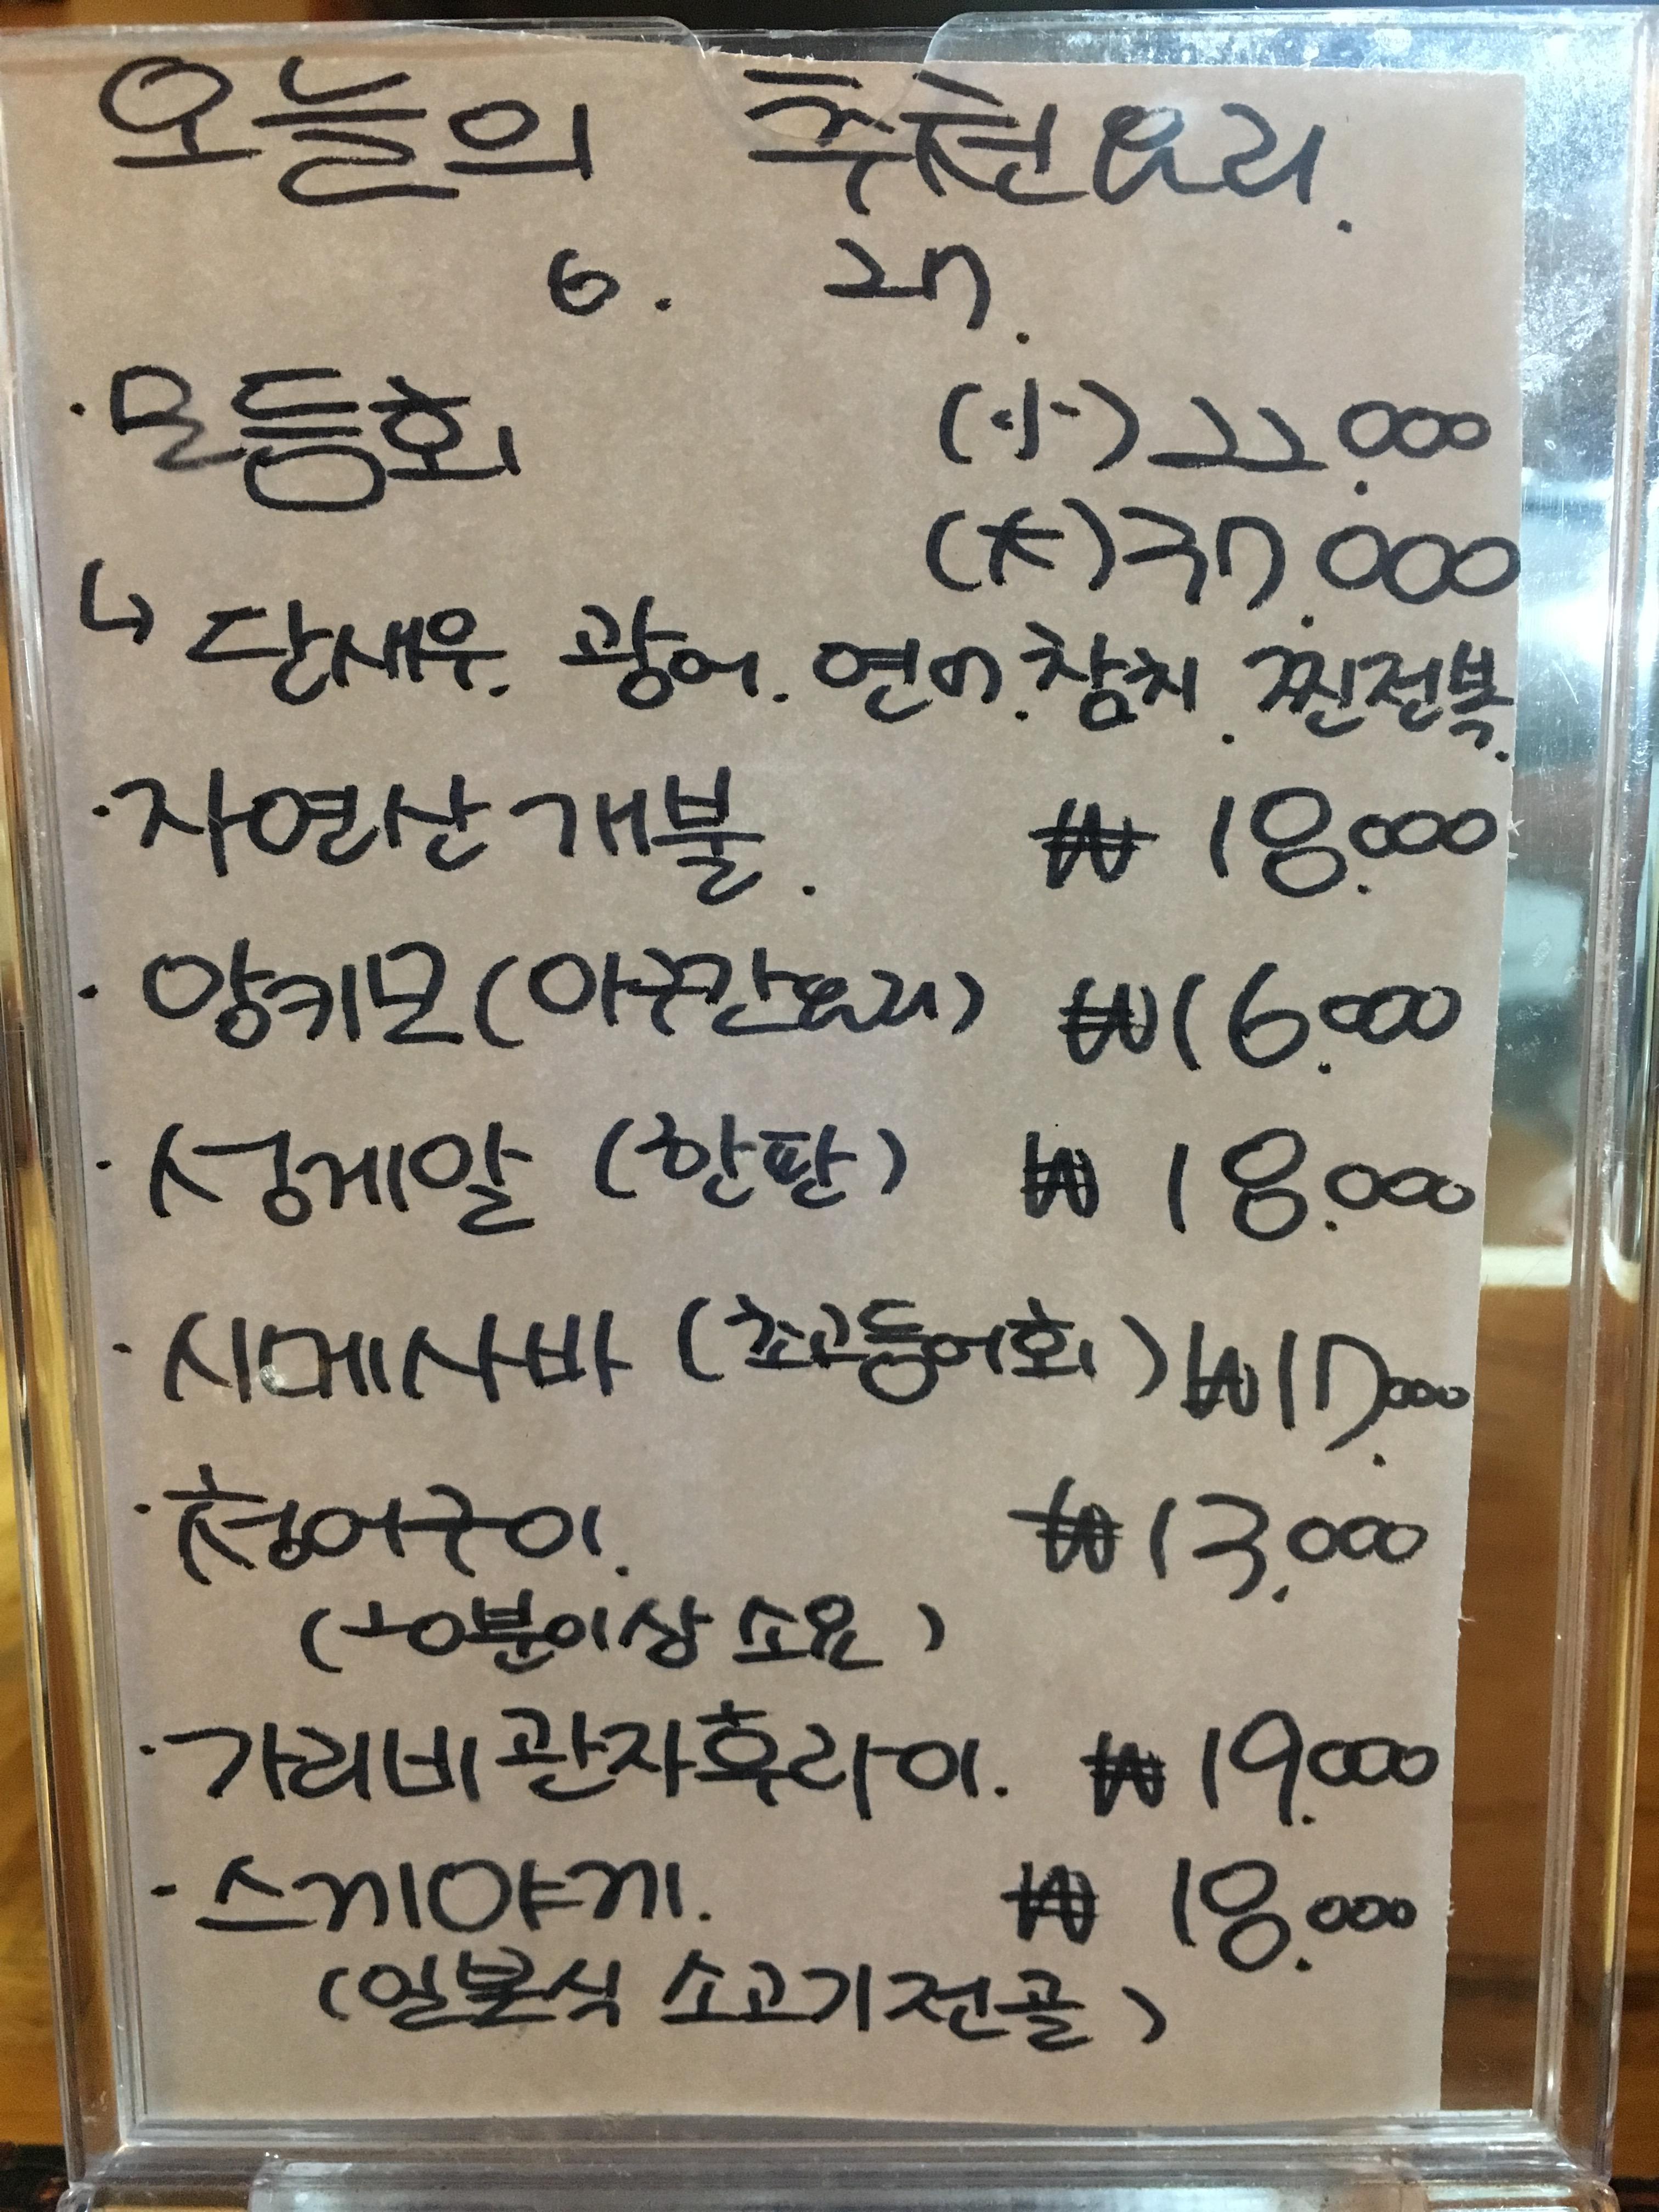 오늘의 추천요리.
6. 27.
· 모듬회 (小) 22.000
(大) 37.000
↳ 단새우. 광어. 연어. 참치. 찐전복.
· 자연산 개불. ₩ 18.000
· 앙키모 (아구간요리) ₩ 16.000
· 성게알 (한판) ₩ 18.000
· 시메사바 (초고등어회) ₩ 17.000
· 청어구이. ₩ 13.000
(20분이상 소요)
· 가리비 관자후라이. ₩ 19.000
- 스끼야끼. ₩ 18.000
(일본식 소고기전골)